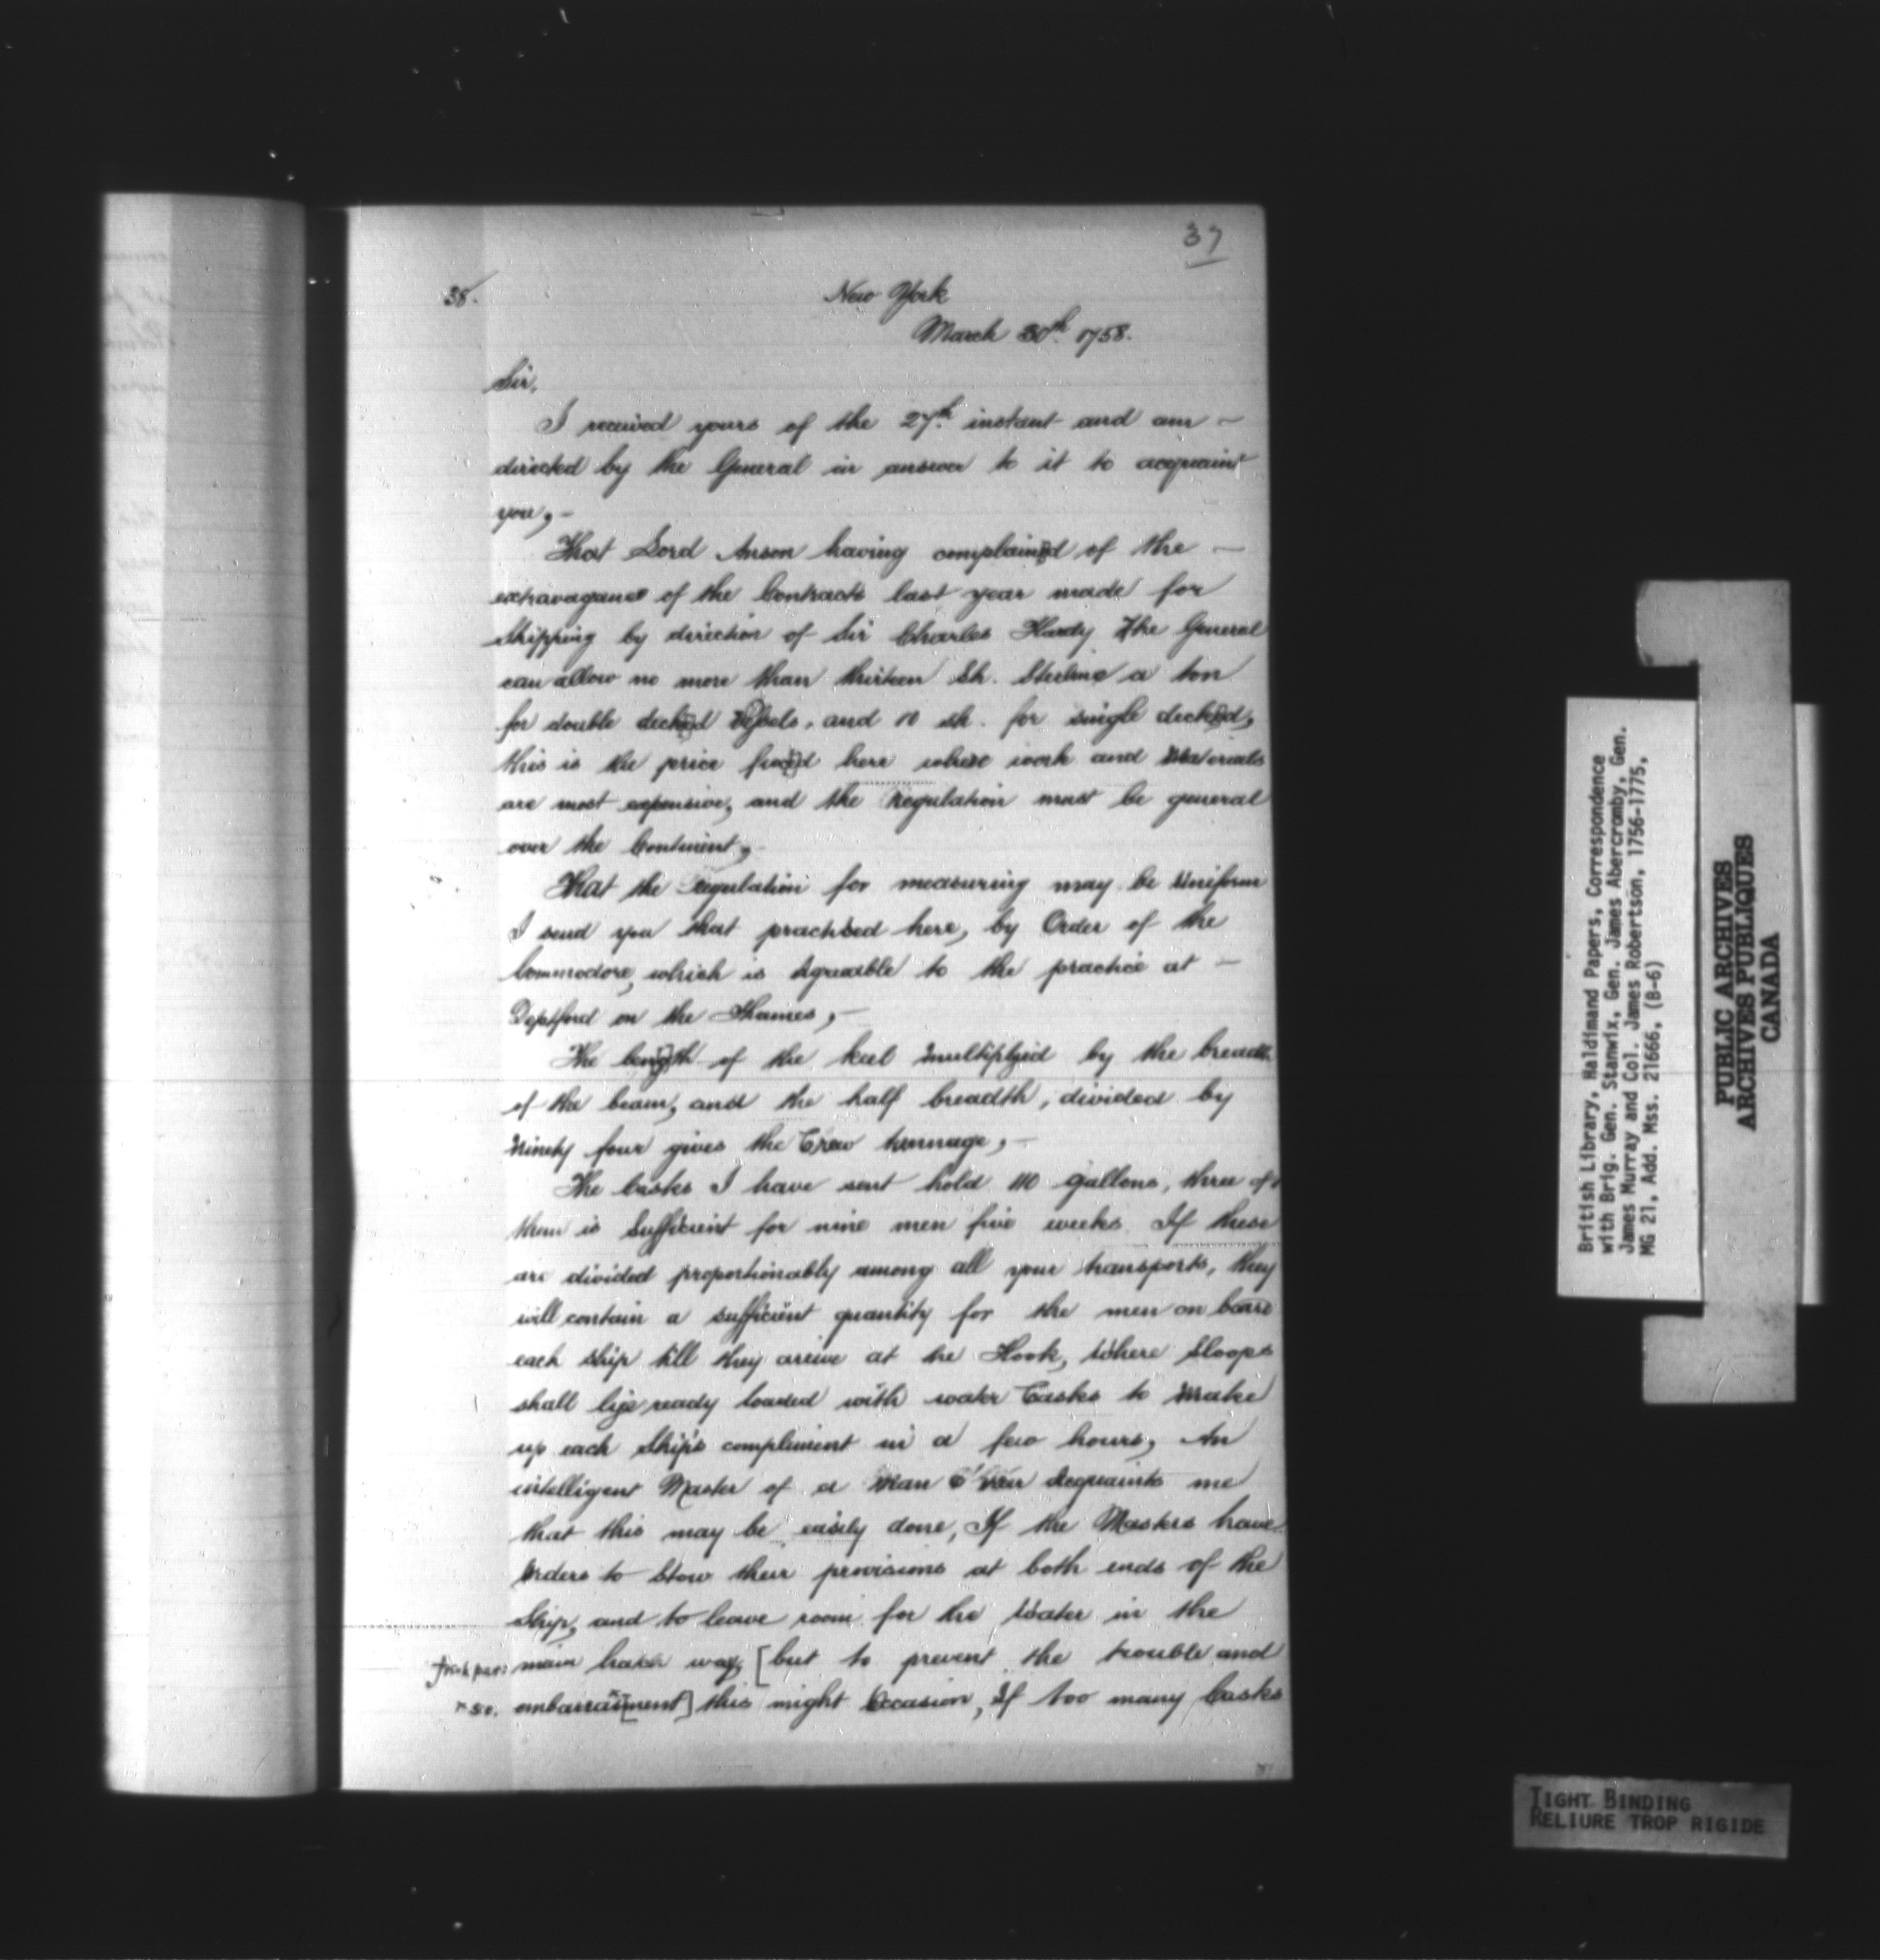 37
38.
New York
March 30th 1758.
Sir,
I received yours of the 27th instant and am —
directed by the General in answer to it to acquaint
you, —
That Lord Anson having complained of the —
extravagance of the Contracts last year made for
Shipping by direction of Sir Charles Hardy the General
can allow no more than thirteen Sh. Sterling a ton
for double decked Vessels, and 10 sh. for single decked,
this is the price fixed here where work and Materials
are most expensive, and the regulation must be general
over the Continent, —
That the regulation for measuring may be Uniform
I send you that practised here, by Order of the
Commodore, which is Agreeable to the practice at —
Deptford on the Thames, —
The length of the keel multiplyed by the breadth
of the beam, and the half breadth, divided by
Ninety four gives the True tunnage, —
The Casks I have sent hold 110 gallons, three of
them is Sufficient for nine men five weeks. If these
are divided proportionably among all your transports, they
will contain a sufficient quantity for the men on board
each ship till they arrive at the Hook, Where Sloops
shall lye ready loaded with water Casks to Make
up each Ship's compliment in a few hours, An
intelligent Master of a Man O'War Acquaints me
that this may be easily done, If the Masters have
Orders to Stow their provisions at both ends of the
Ship, and to leave room for the Water in the
main hatch way, [but to prevent the trouble and
× so. embarras×[ment] this might Occasion, If too many Casks
British Library, Haldimand Papers, Correspondence
with Brig. Gen. Stanwix, Gen. James Abercromby, Gen.
James Murray and Col. James Robertson, 1756-1775,
MG 21, Add. Mss. 21666, (B-6)
PUBLIC ARCHIVES
ARCHIVES PUBLIQUES
CANADA
TIGHT BINDING
RELIURE TROP RIGIDE